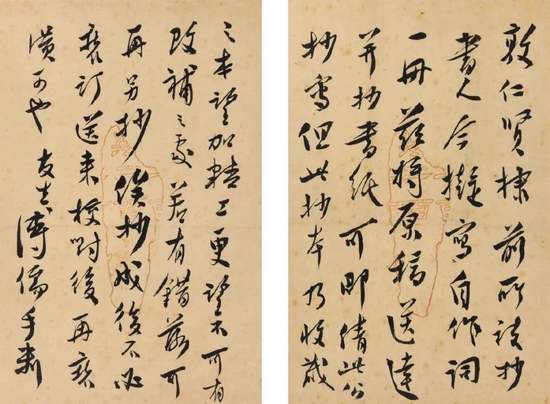 敦仁賢棣 前所談抄
書人 今擬寫自作詞
一冊 茲將原稿送達
并抄書紙 可即倩此公
抄寫 但此抄本乃收藏
之本 望加精工 更望不可有
改補之處 若有錯落 可
再另抄 俟抄成後不必
裝訂 送來校對後 再裝
潢可也 友生 溥儒手